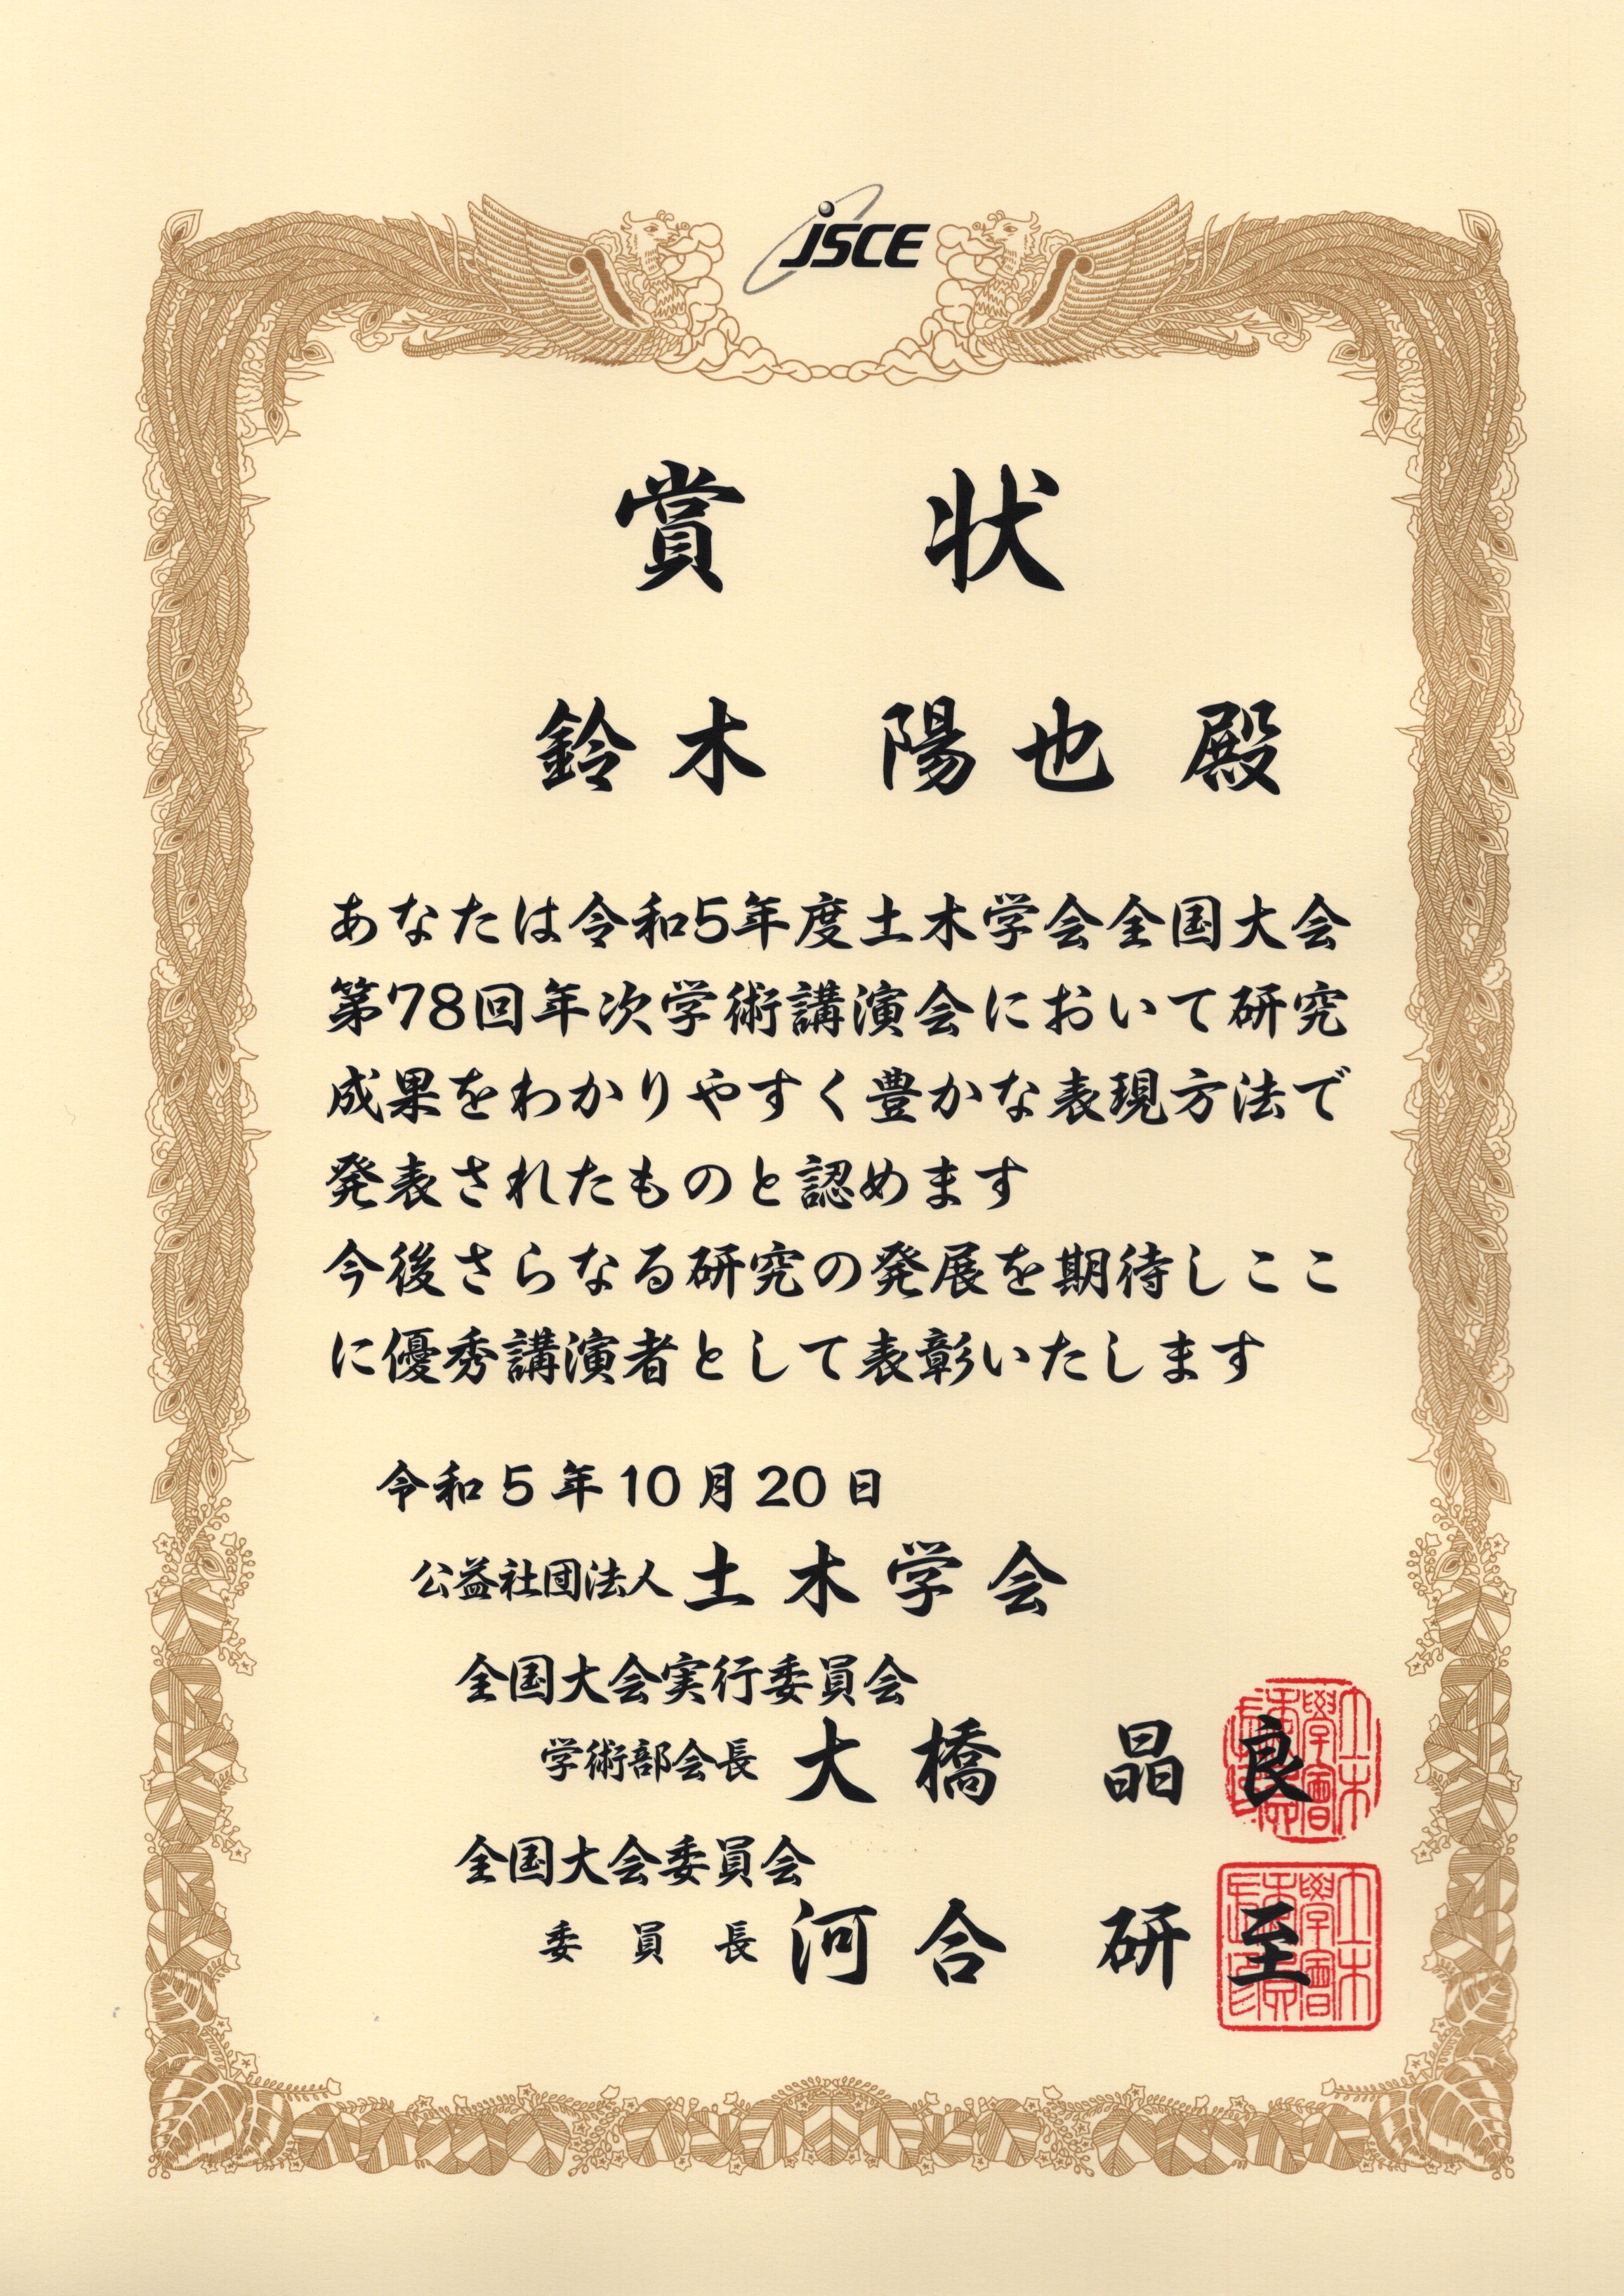 JSCE
賞 状
鈴木 陽也 殿
あなたは令和5年度土木学会全国大会
第78回年次学術講演会において研究
成果をわかりやすく豊かな表現方法で
発表されたものと認めます
今後さらなる研究の発展を期待しここ
に優秀講演者として表彰いたします
令和5年10月20日
公益社団法人 土木学会
全国大会実行委員会
学術部会長 大橋 晶良
全国大会委員会
委員長 河合 研至